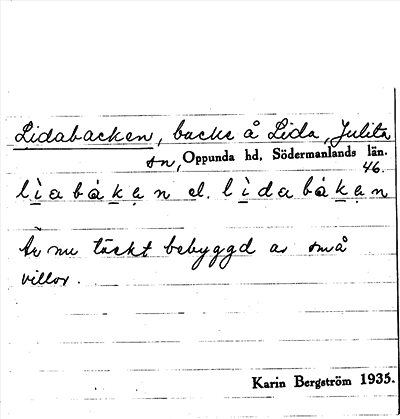 Lidabacken, backe å Lida, Julita
sn, Oppunda hd, Södermanlands län.
46.
l ì a b à k a n el. l ì d a b à k a n
Är nu täckt bebyggd av små
villor.
Karin Bergström 1935.